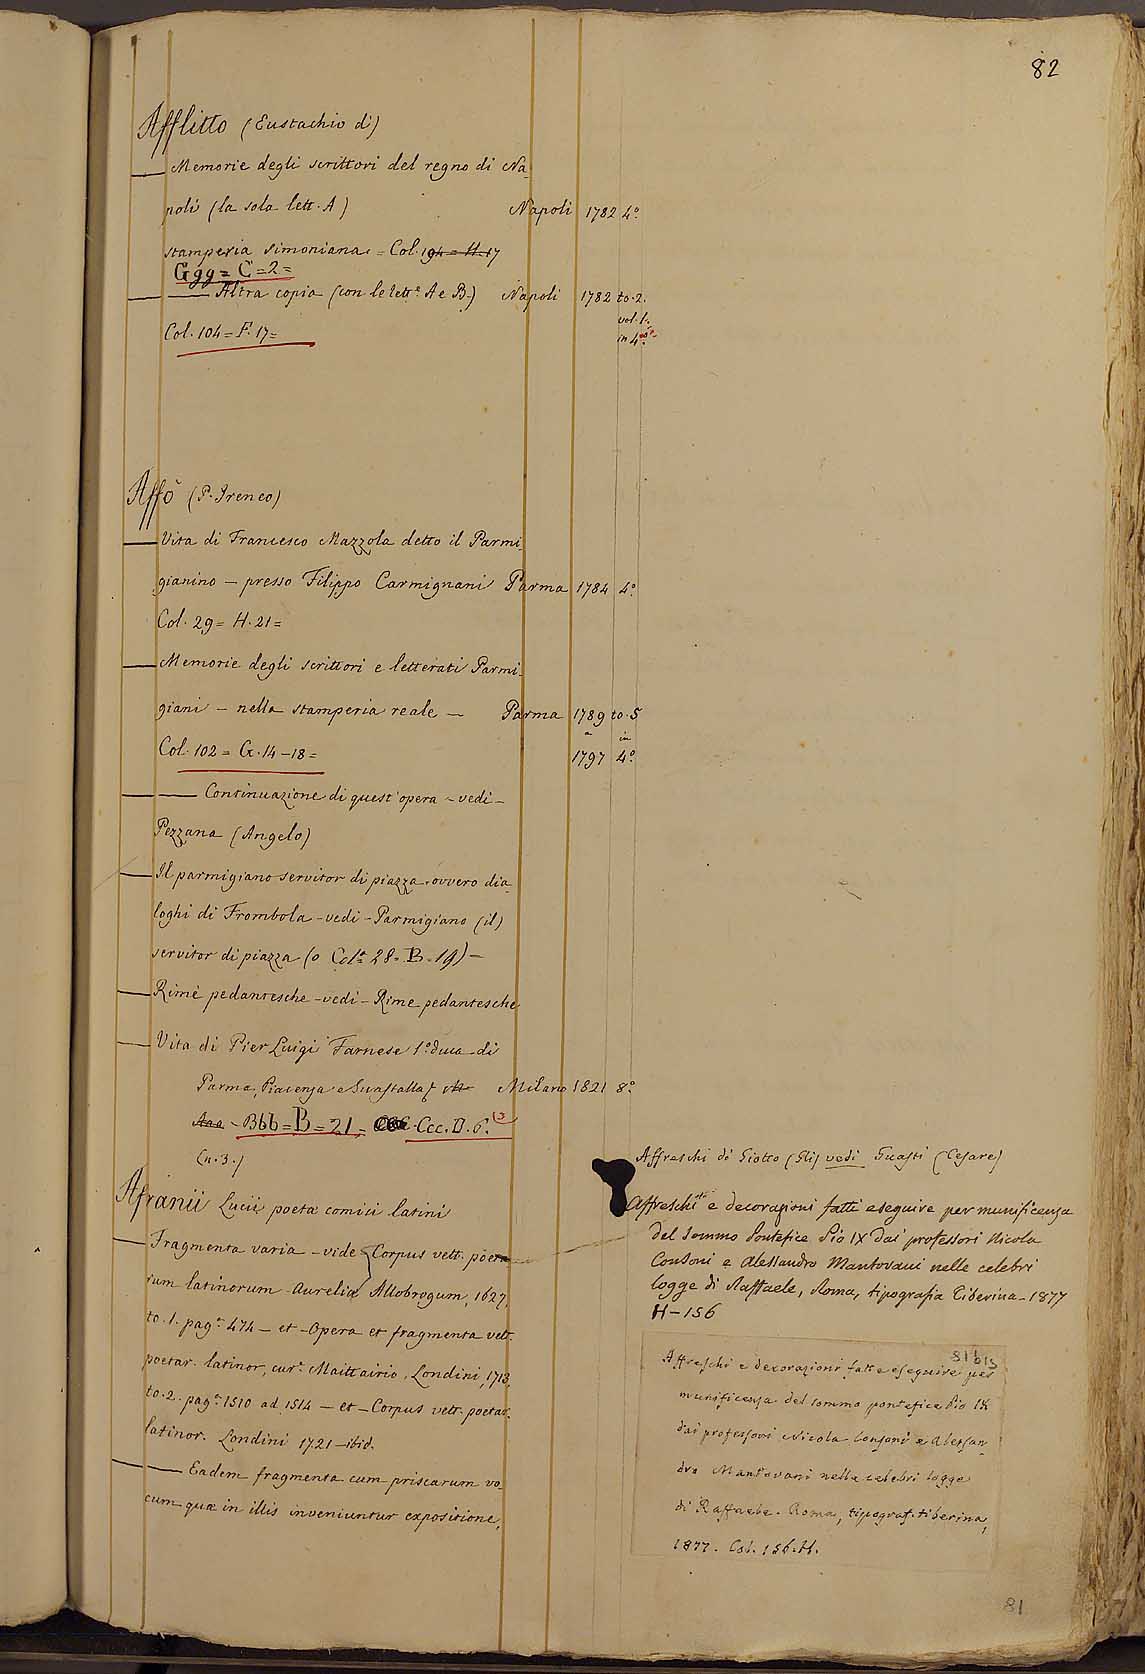 82
Afflitto (Eustachio d')
Memorie degli scrittori del regno di Na-
poli (la sola lett. A) Napoli 1782 4.o
stamperia simoniana. = Col. 194 = H. 17
Ggg = C = 2 =
Altra copia (con le lett.e A e B.) Napoli 1782 to. 2.
vol. 1.
Col. 104 = F. 17 = in 4.o
Affò (P. Ireneo)
Vita di Francesco Mazzola detto il Parmi-
gianino – presso Filippo Carmignani Parma 1784 4.o
Col. 29 = H. 21 =
Memorie degli scrittori e letterati Parmi-
giani – nella stamperia reale – Parma 1789 to. 5
a in
Col. 102 = G. 14 – 18 = 1797 4.o
Continuazione di quest'opera – vedi –
Pezzana (Angelo)
Il parmigiano servitor di piazza, ovvero dia-
loghi di Frombola – vedi – Parmigiano (il)
servitor di piazza (o Col.a 28 = B = 19) –
Rime pedantesche – vedi – Rime pedantesche
Vita di Pier Luigi Farnese 1.o duca di
Parma, Piacenza e Guastalla Milano 1821 8.o
Aaa – Bbb = B = 21 = Ccc. D. 6. 13
(n. 3.)
Afranii Lucii poetæ comici latini
Fragmenta varia – vide Corpus vett. poeta-
rum latinorum Aureliæ Allobrogum, 1627,
to. 1. pag.a 474 – et – Opera et fragmenta vett.
poetar. latinor, cur.e Maittairio, Londini, 1713,
to. 2. pag.a 1510 ad 1514 – et – Corpus vett. poetar.
latinor. Londini 1721 – ibid.
Eadem fragmenta cum priscarum vo-
cum quæ in illis inveniuntur expositione,
Affreschi di Giotto (Gli) vedi Guasti (Cesare)
Affreschi e decorazioni fatti eseguire per munificenza
del Sommo Pontefice Pio IX dai professori Nicola
Consoni e Alessandro Mantovani nelle celebri
logge di Raffaele, Roma, tipografia Tiberina – 1877
H – 156
81 bis
Affreschi e decorazioni fatte eseguire per
munificenza del sommo pontefice Pio IX
dai professori Nicola Consoni e Alessan-
dro Mantovani nelle celebri logge
di Raffaele. Roma, tipograf. tiberina,
1877. Col. 156. H.
81